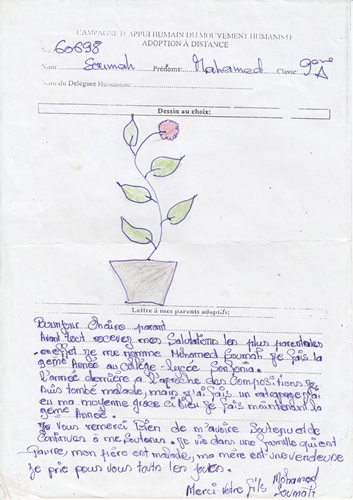 CAMPAGNE D'APPUI HUMAIN DU MOUVEMENT HUMANISTE
ADOPTION A DISTANCE
No. 60698
Nom Soumah Prénoms: Mohamed Classe: 9eme A
Nom du Delegué Humaniste:
Dessin au choix:
Lettre à mes parents adoptifs:
Bounjour Chaire parant
Avant tout recevez mes Salutations les plus parentales
en effet Je me nomme Mohamed Soumah Je fais la
9eme Année au Collège-Lycée
l'année dernière a l'aproche des Compositions Je
Suis tombé malade, mais j'ai fais un ratrapage J'ai
eu ma moyenne grace a Dieu Je fais maintenant la
9eme Année.
Je Vous remerci Bien de m'avoire Soutenu et de
Continues à me Soutenus. Je vis dans une famille qui est
pauvre, mon père est malade, ma mère est une vendeuse
Je prie pour vous touts les Jours.
Merci Votre fils Mohamed
Soumah